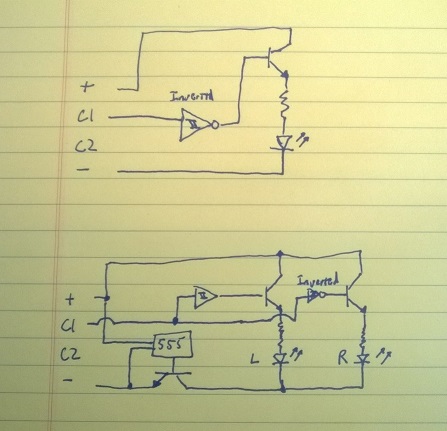 Inverted
+
C1
C2
-
Inverted
+
C1
555
C2
L
R
-